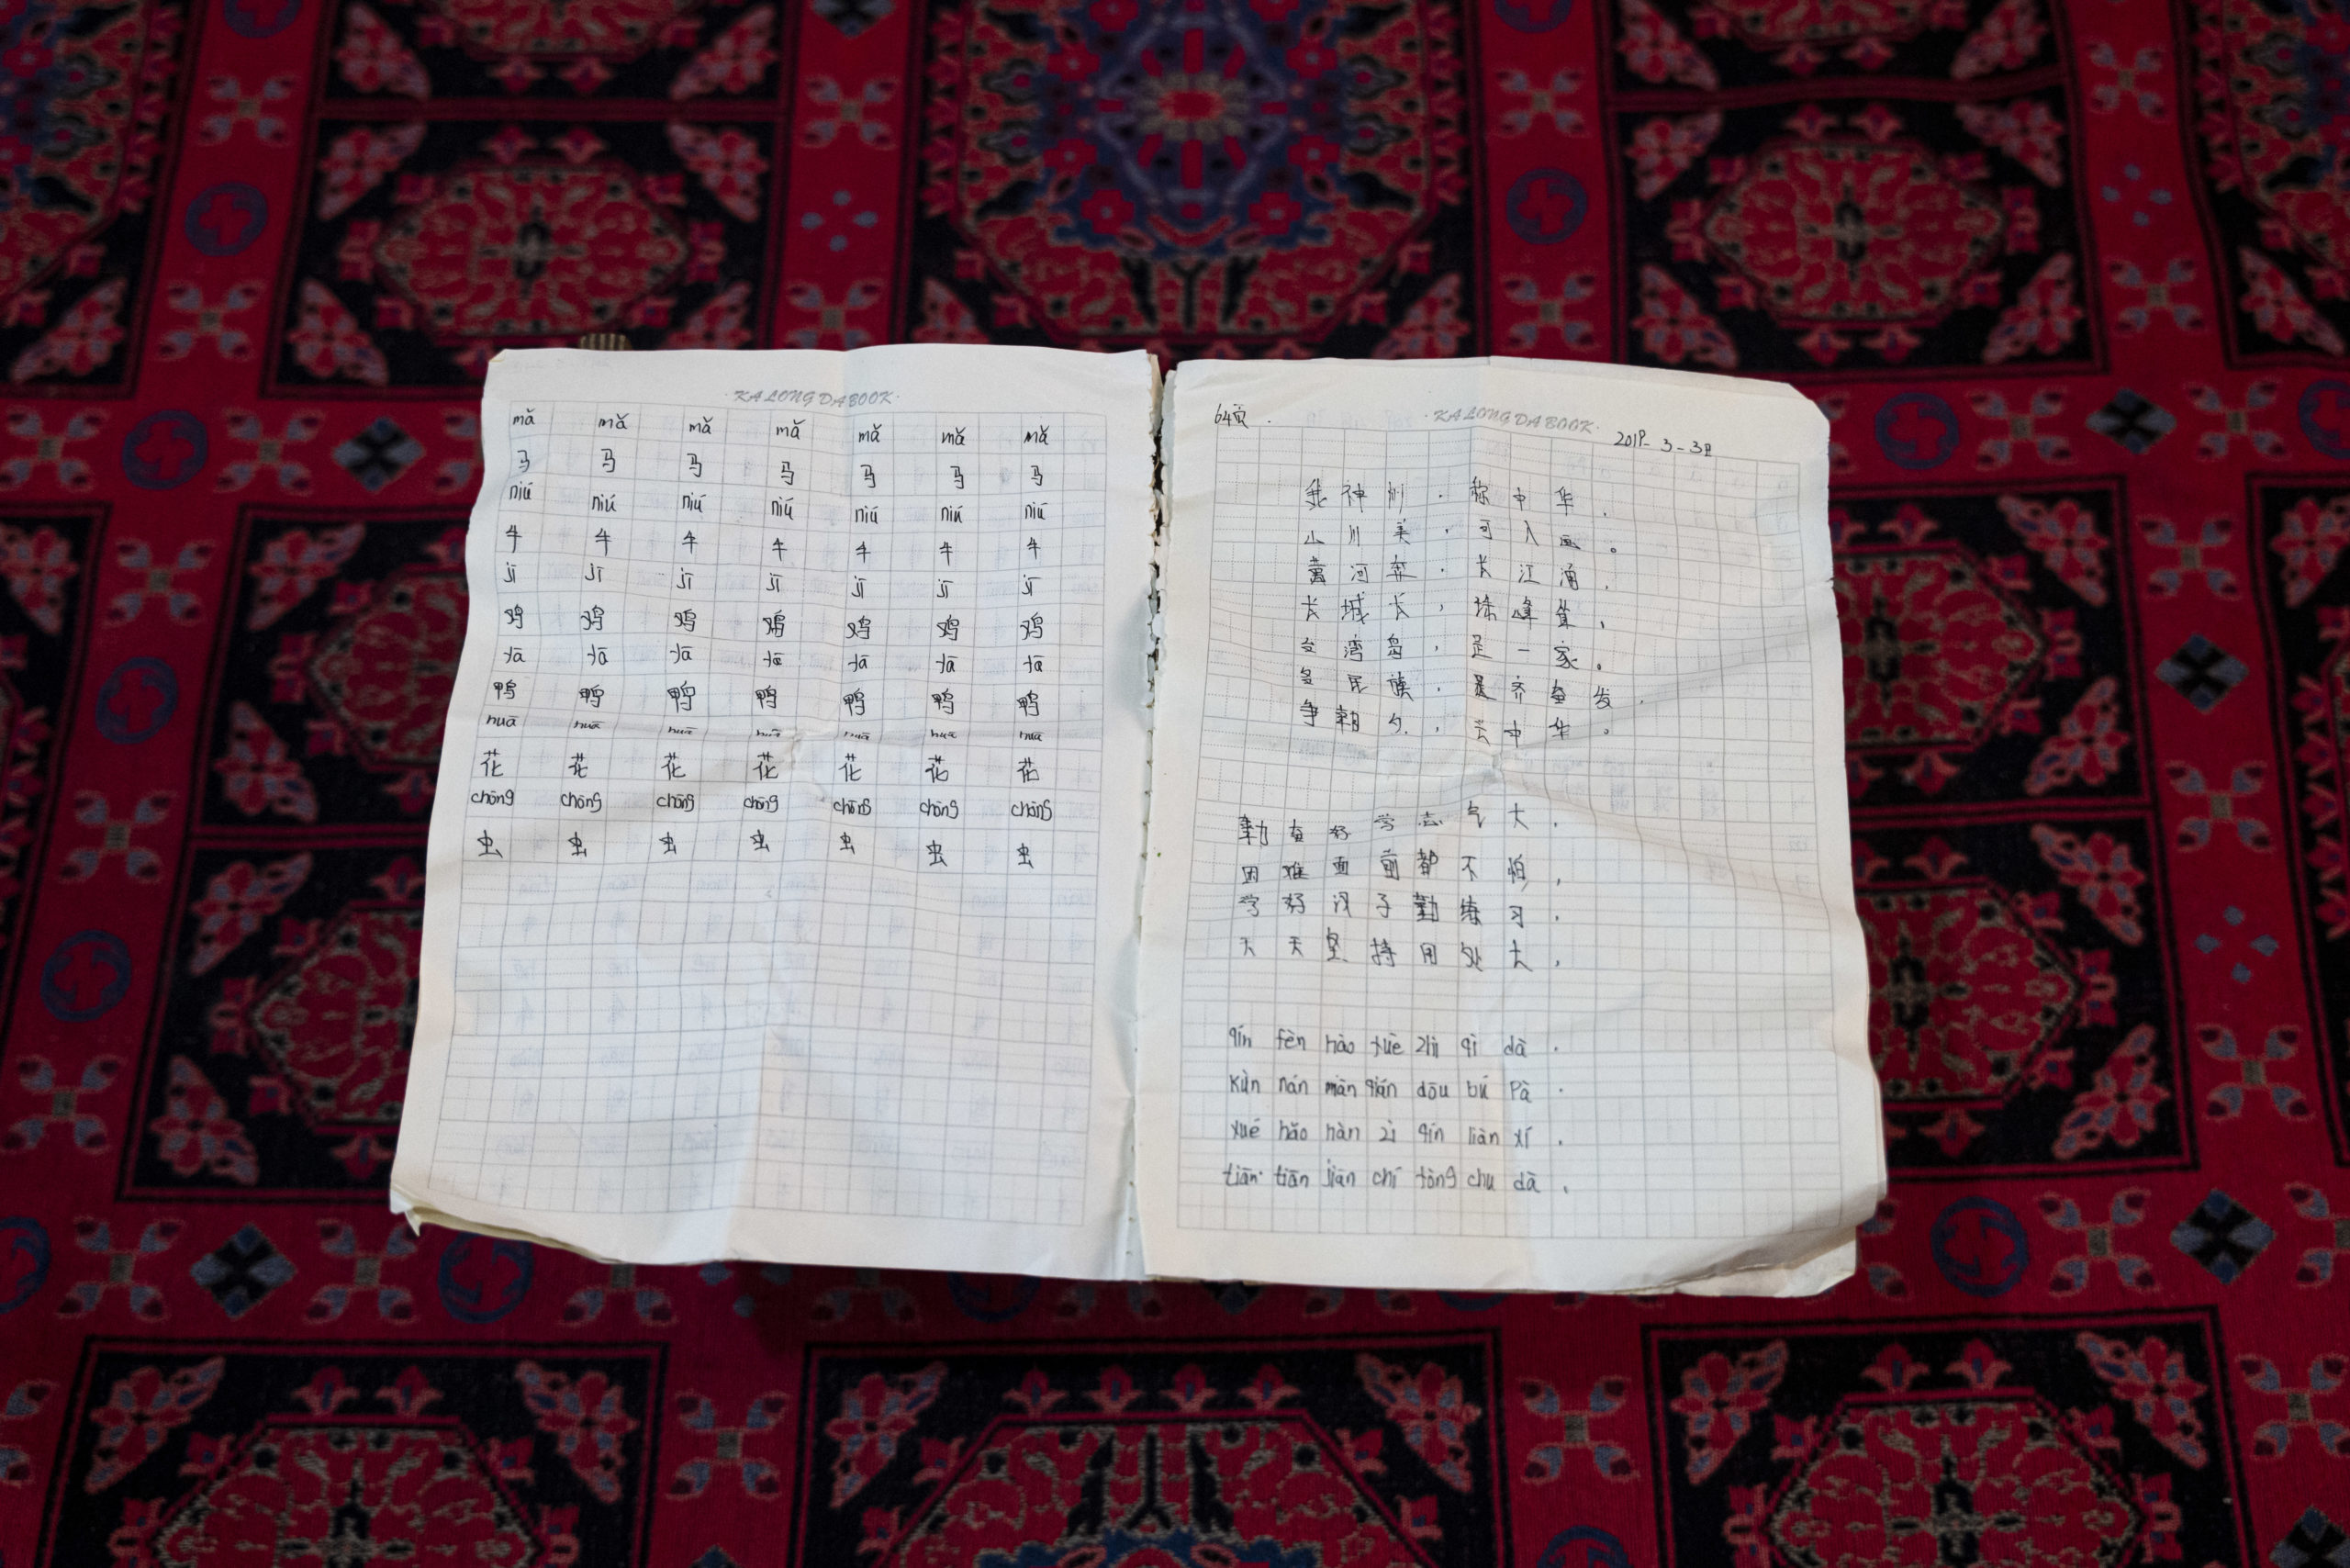 ·KALONGDABOOK·
mǎ mǎ mǎ mǎ mǎ mǎ mǎ
马 马 马 马 马 马 马
niú niú niú niú niú niú niú
牛 牛 牛 牛 牛 牛 牛
jī jī jī jī jī jī jī
鸡 鸡 鸡 鸡 鸡 鸡 鸡
yā yā yā yā yā yā yā
鸭 鸭 鸭 鸭 鸭 鸭 鸭
huā huā huā huā huā huā huā
花 花 花 花 花 花 花
chōng chōng chōng chōng chōng chōng chōng
虫 虫 虫 虫 虫 虫 虫
·KALONGDABOOK·
64页.
3-3日
我神州,称中华,
山川美,可入画。
黄河奔,长江涌,
长城长,珠峰耸,
台湾岛,是一家。
多民族,是齐奋发,
争朝夕,中华。
勤奋好学志气大,
困难面前都不怕,
学好汉子勤练习,
天天坚持用处大,
qín fèn hào xuè zhì qì dà.
kùn nán miàn qián dōu bú Pà.
xué hǎo hàn zì qín liàn xí.
tiān tiān jiān chí yòng chu dà.